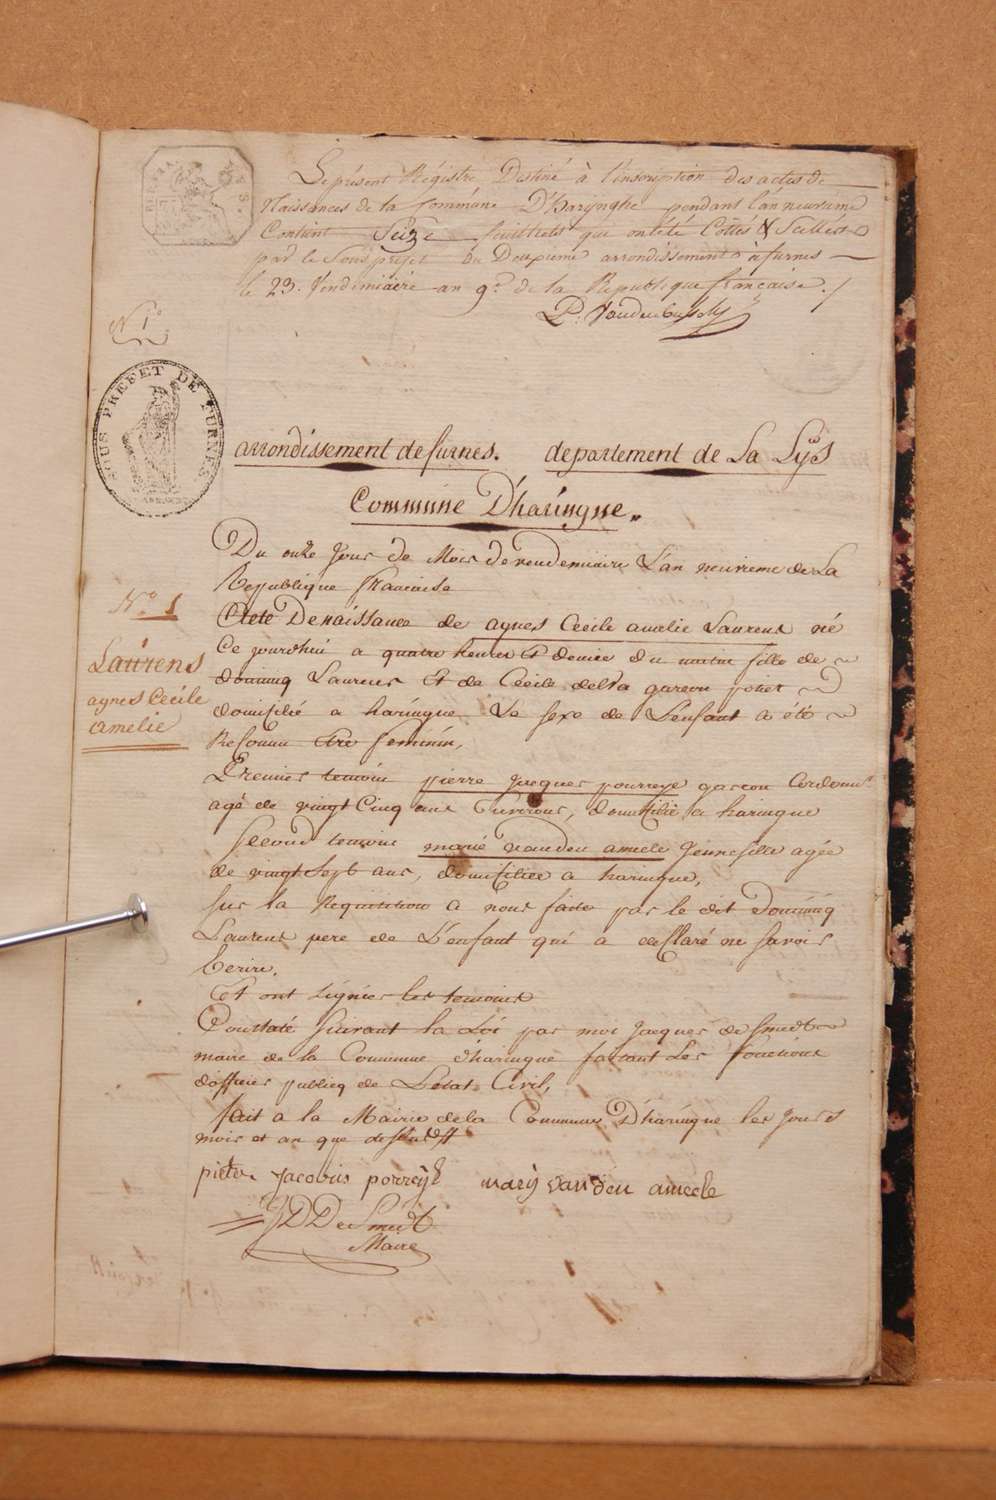 Le présent Régistre Destiné à l'inscription des actes de
Naissances de la Commúne D'harynghe pendant l'an neuvième
Contient Seize feuillets qui ont été Cottés & Scellés
par le Sous prefet du Deuxieme arrondissement à furnes
le 23. Vendemiaire an 9e de la Republique française./
N 1°
SOUS PREFET DE FURNES
arrondissement de furnes. departement de La Lÿs
Commune D'haringue.
Du onze Jour de Mois de vendemiaire L'an neuvieme de La
Republique francaise
N.° 1
Laúrens
agnes Cecile
amelie
Acte De naissance de agnes Cecile amelie Laurens né
Ce jourdhui a quatre heures et demie du matin fille de
dominiq Laurens Et de Cecile delva garcon
domicilié a haringue Le sexe de L'enfant a été
Reconnu etre feminin,
Premier temoin pierre Jacques pourreye garcon Cordonr
agé de vingt Cinq ans Environs, domicilié a haringue
Second temoin marie vanden ameele Jeune fille agée
de vingt Sept ans, domiciliée a haringue,
Sur la Requisition a nous faite par le dit Dominiq
Laurens pere de L'enfant qui a declaré ne savoir
Ecrire.
Et ont signés les temoins
Constaté Suivant la Loi par moi Jacques de Smedt
maire de la Commune d'haringue faisant Les fonctions
d'officier publicq de L'etat Civil,
fait a la Mairie de la Commune D'haringue les Jours
mois et an que dessus
pieter Jacobus porreÿe marÿ vanden ameele
JDDe Smedt
Maire